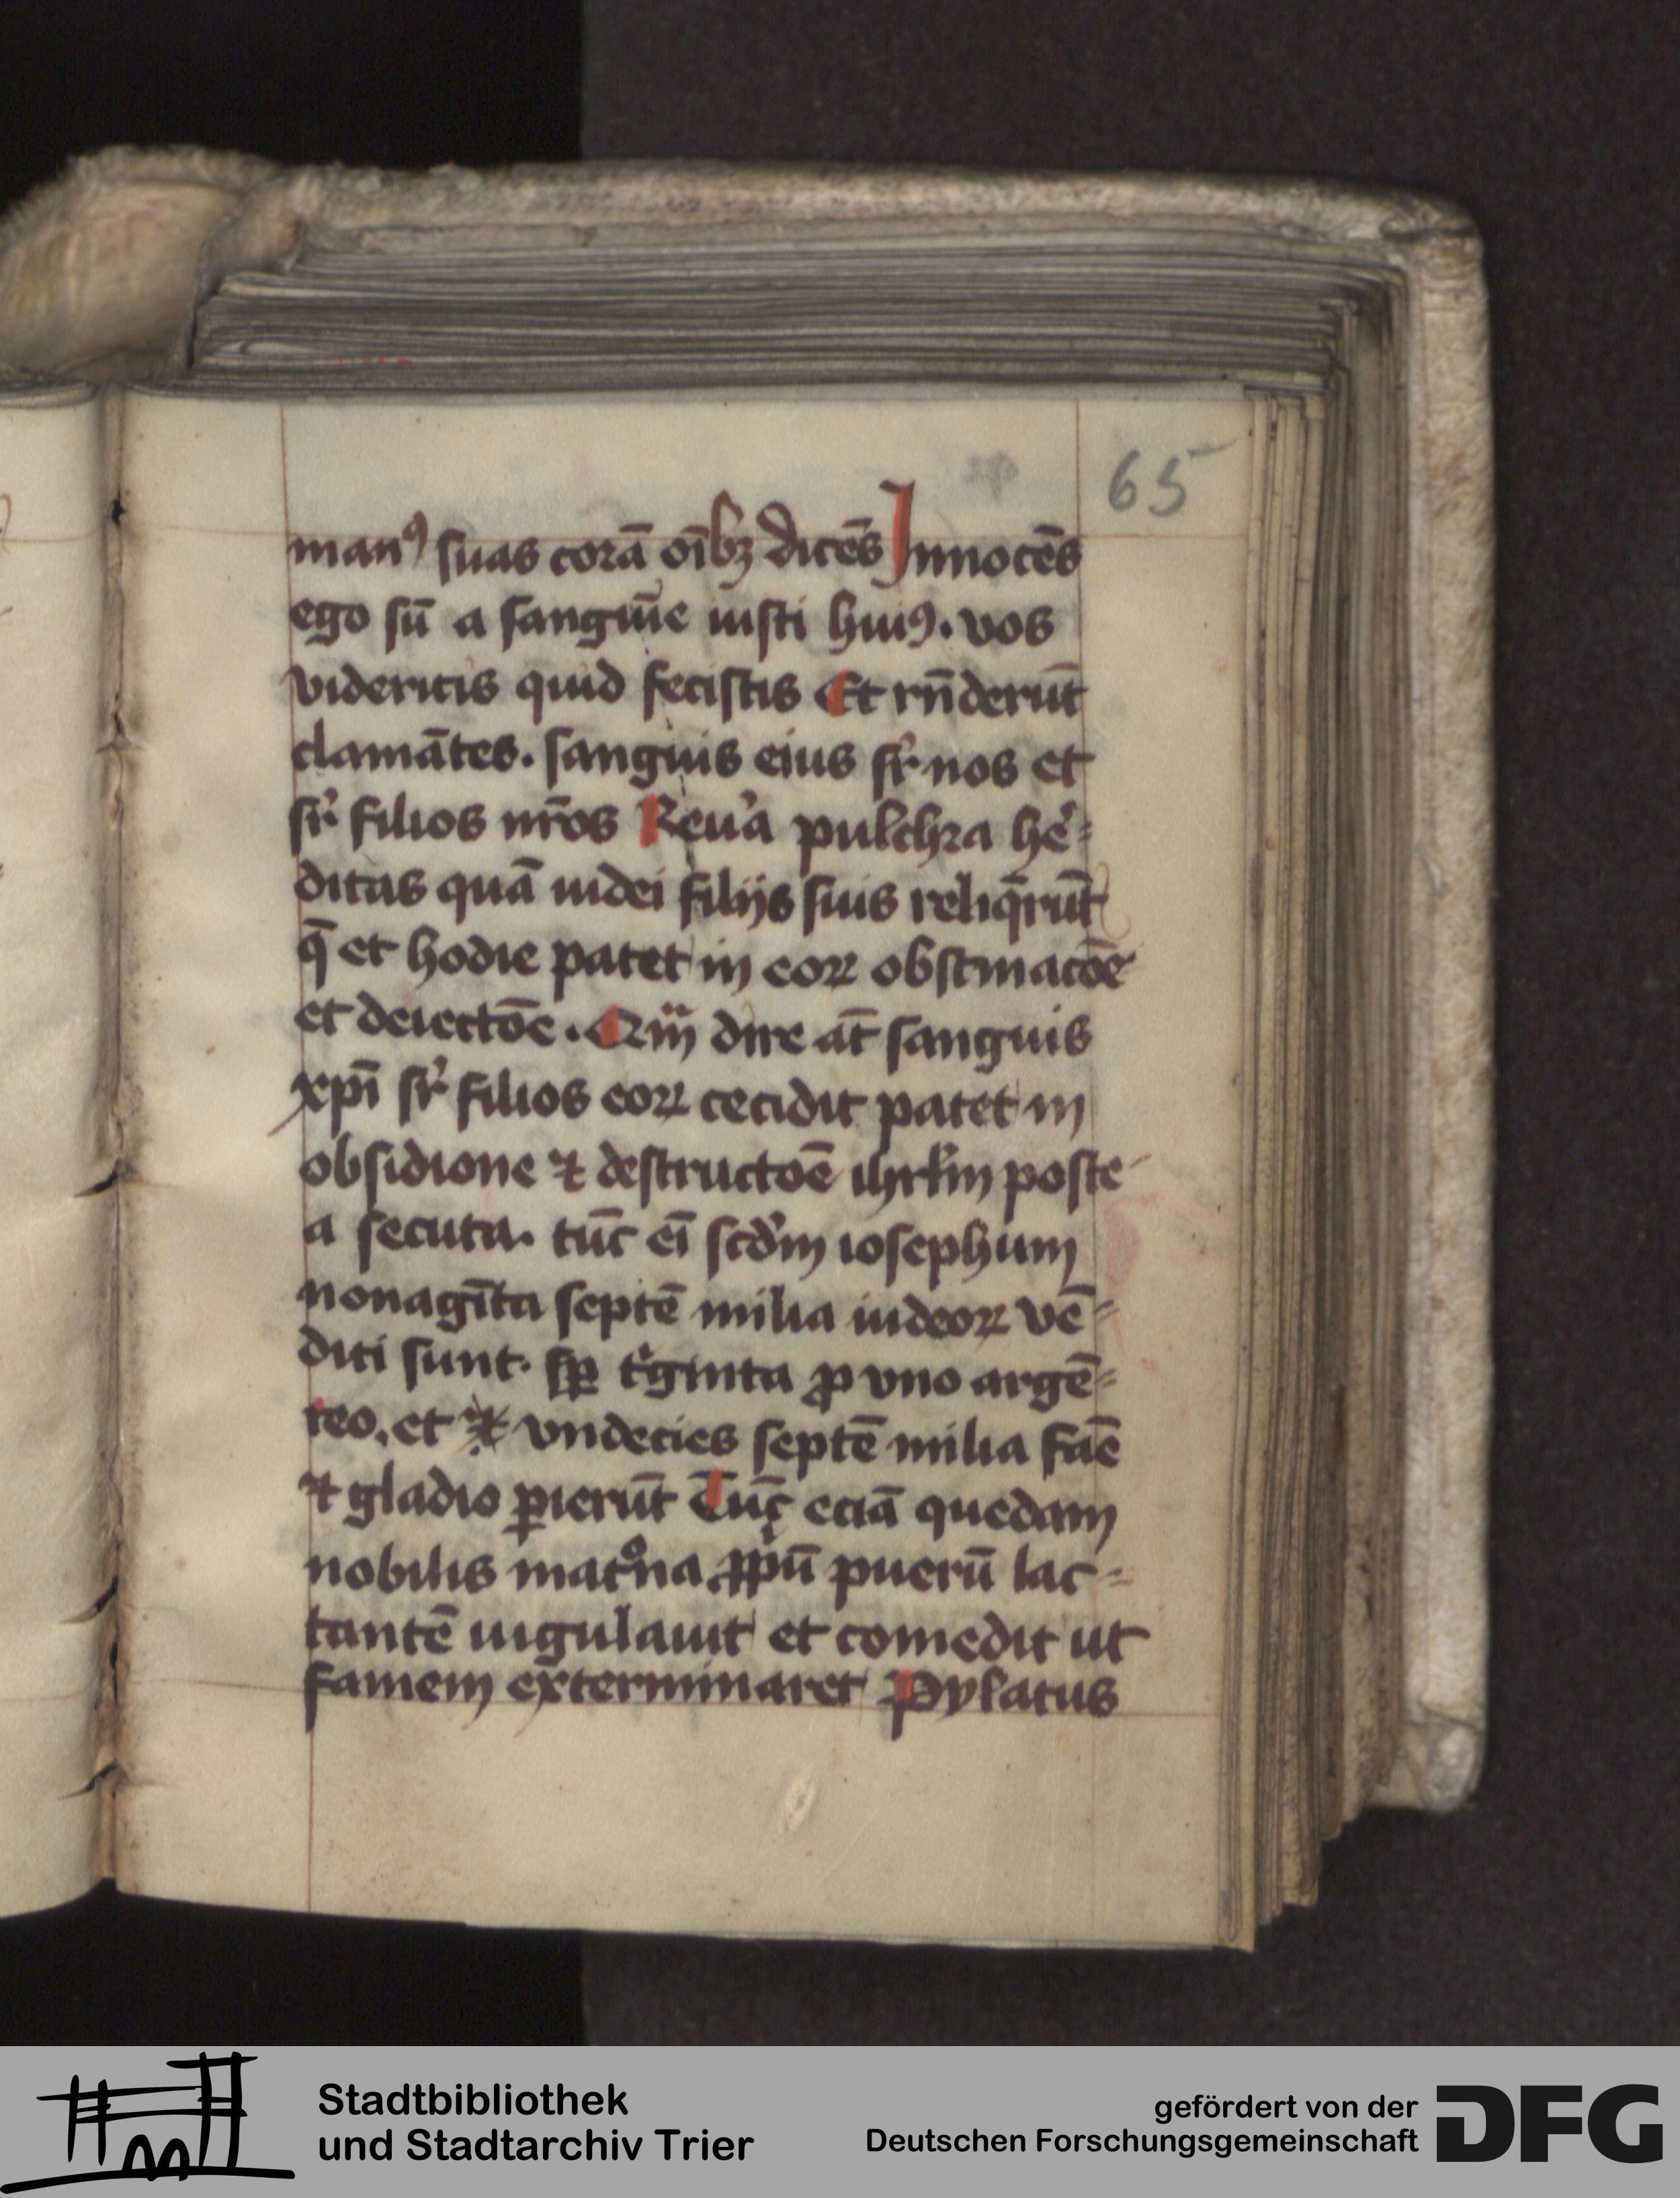 65
manꝰ suas corā oībꝫ dicēs Innocēs
ego sū a sanguīe iusti huiꝰ. vos
videritis quid fecistis Et rn̄derūt
clamātes. sanguis eius sr̓ nos et
sr̓ filios nr̄os Reu̓a pulchra he̓=
ditas quā iudei filijs suis reliq̄rūt
q̄ et hodie patet in eoꝝ obstinacōe
et deiectōe. Qm̄ dire at̄ sanguis
xpī sr̓ filios eoꝝ cecidit patet in
obsidione ⁊ destructōe ihrlm̄ poste
a secuta. tūc eī scd̓m iosephum
nonagīta septē milia iudeoꝝ vē=
diti sunt. sꝑ tⁱginta ꝓ vno argē=
teo. et ⁊ vndecies septē milia fāe
⁊ gladio ꝑierūt Tūc eciā quedam
nobilis matᵒna ꝓpiū puerū lac=
tantē iugulauit et comedit ut
famem exterminaret Pylatus
Stadtbibliothek
und Stadtarchiv Trier
gefördert von der
Deutschen Forschungsgemeinschaft
DFG